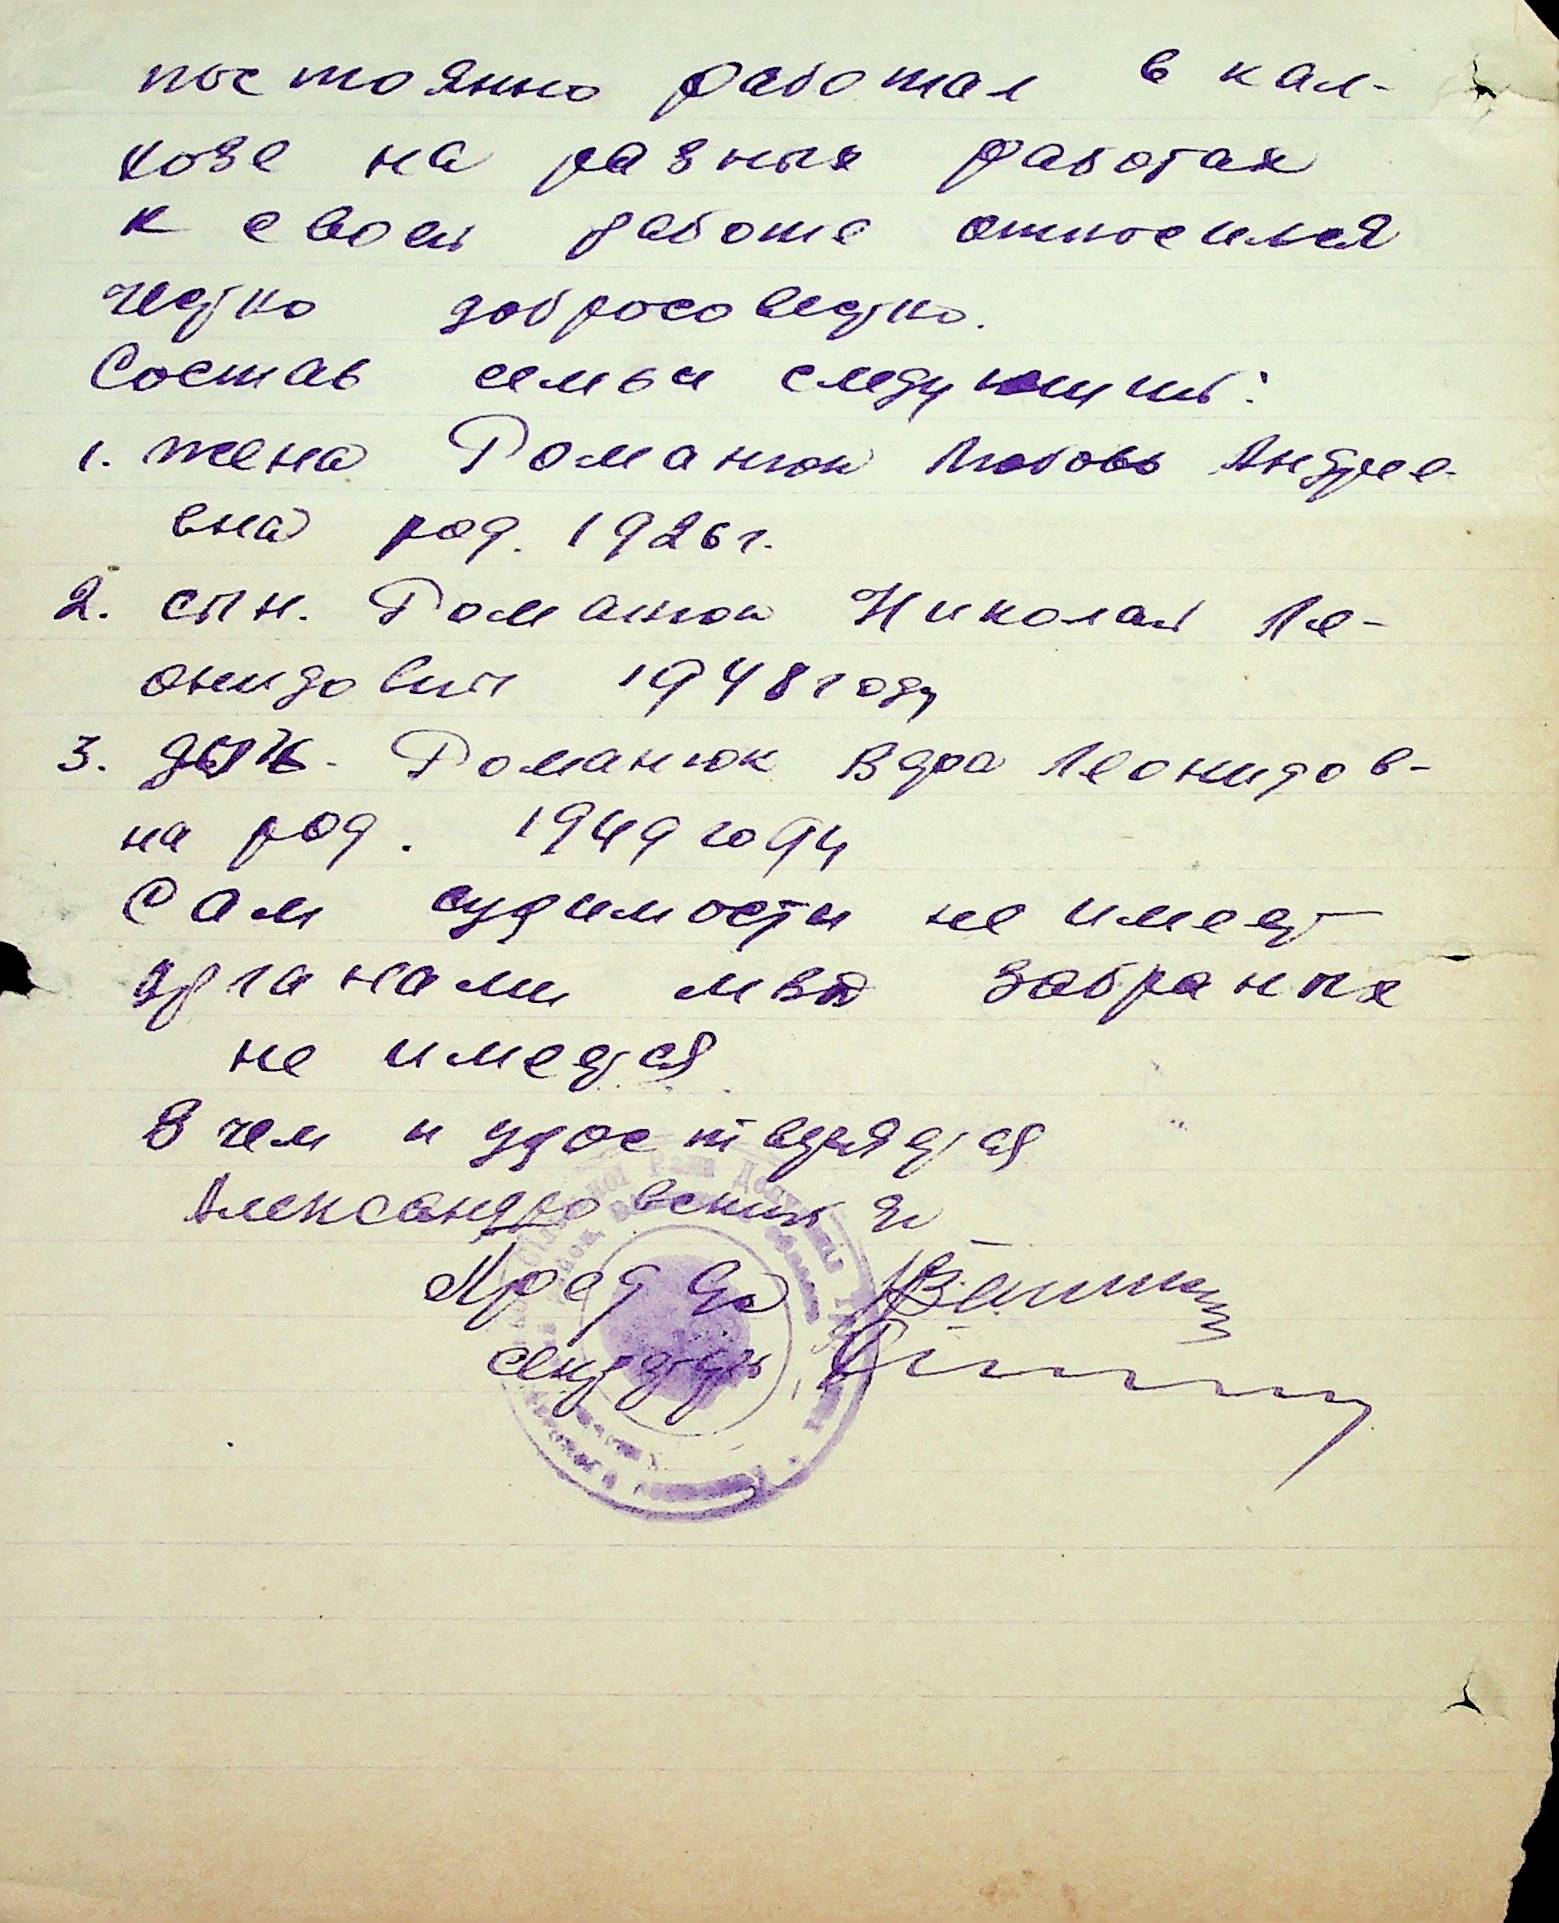 постоянно работал в кал-
хозе на разных работах
к своей работе относился
чесно добросовесно.
Состав семьи следующий:
1. жена Романюк Любовь Андрее-
вна род. 1926 г.
2. сын. Романюк Николай Ле-
онидович 1948 году
3. дочь. Романюк Вера Леонидов-
на род. 1949 году
Сам судимости не имеет
органами мвд забраных
не имеется
В чем и удостверяется
Александровский с/с
Пред с/с
секретарь